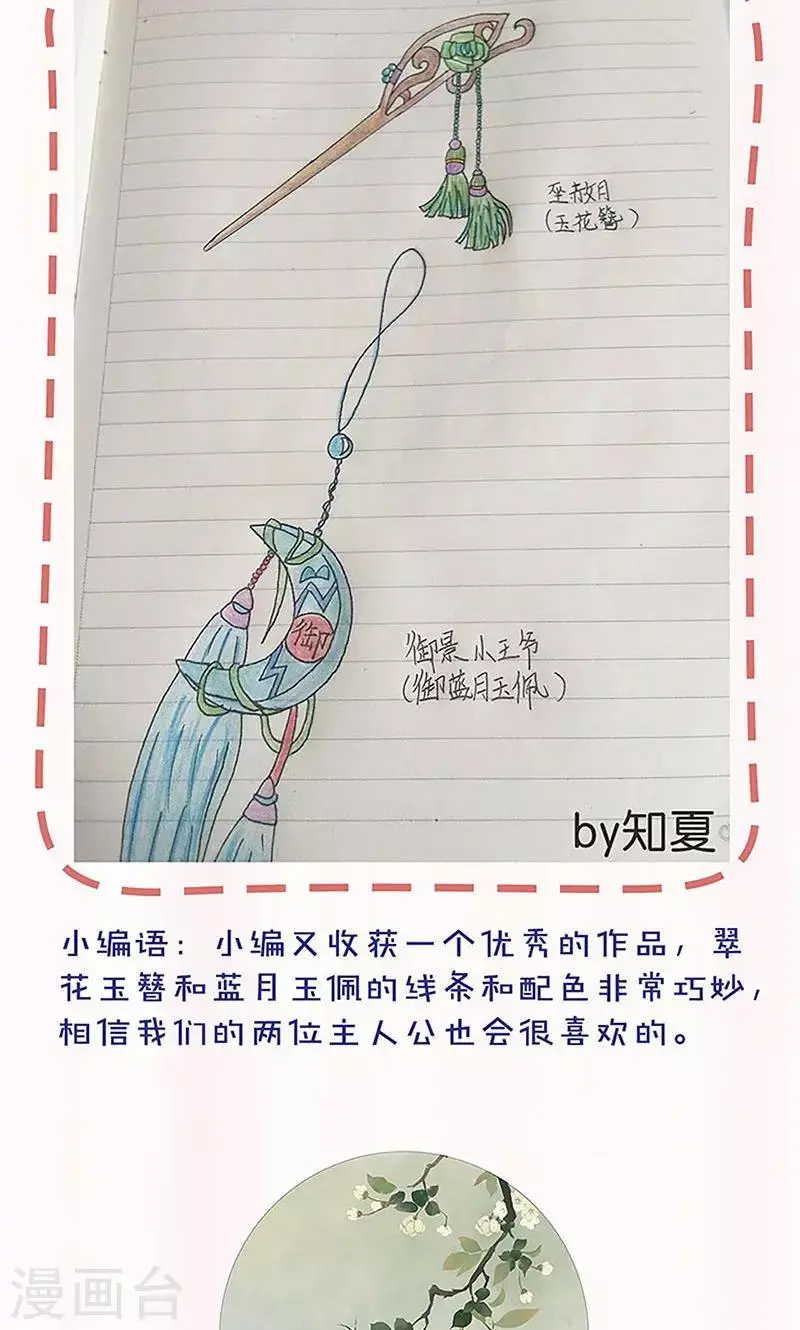 巫赦月
(玉花簪)
御
御景小王爷
(御蓝月玉佩)
by知夏
小编语：小编又收获一个优秀的作品，翠
花玉簪和蓝月玉佩的线条和配色非常巧妙，
相信我们的两位主人公也会很喜欢的。
漫画台